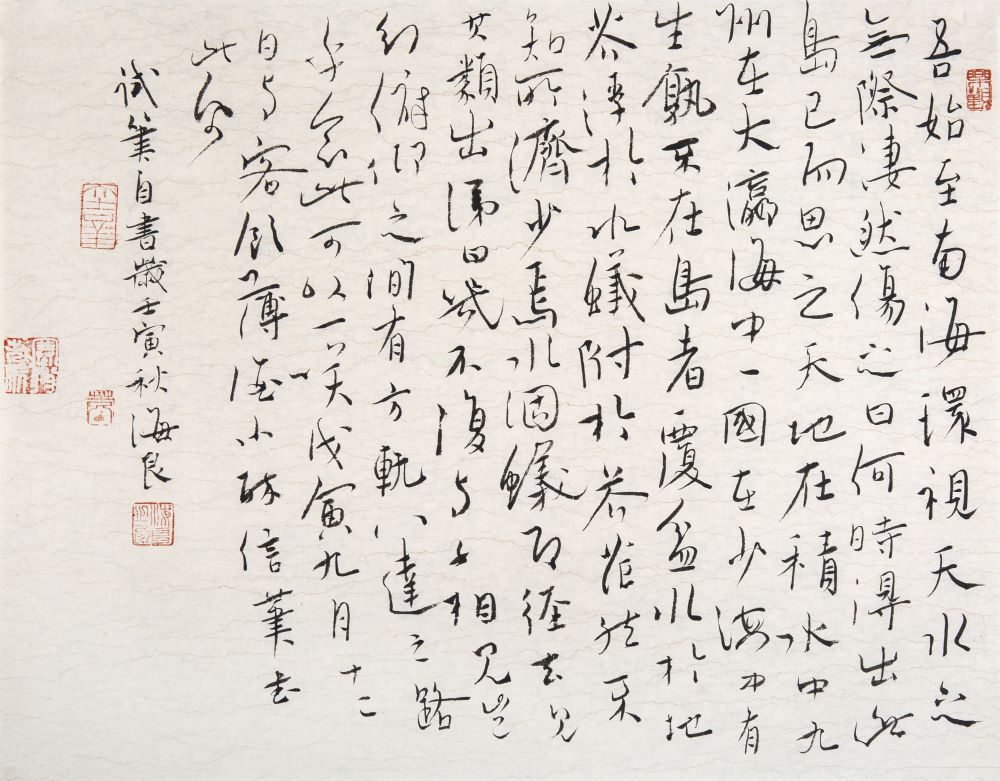 吾始至南海環視天水之
無際淒然傷之曰何時得出此
島已而思之天地在積水中九
州在大瀛海中一國在少海中有
生孰不在島者覆盆水於地
芥浮於水蟻附於芥茫然不
知所濟少焉水涸蟻即徑去見
其類出涕曰幾不復與子相見豈
知俯仰之間有方軌八達之路
乎念此可以一笑戊寅九月十二
日與客飲薄酒小醉信筆書
此紙
試筆自書歲壬寅秋海良